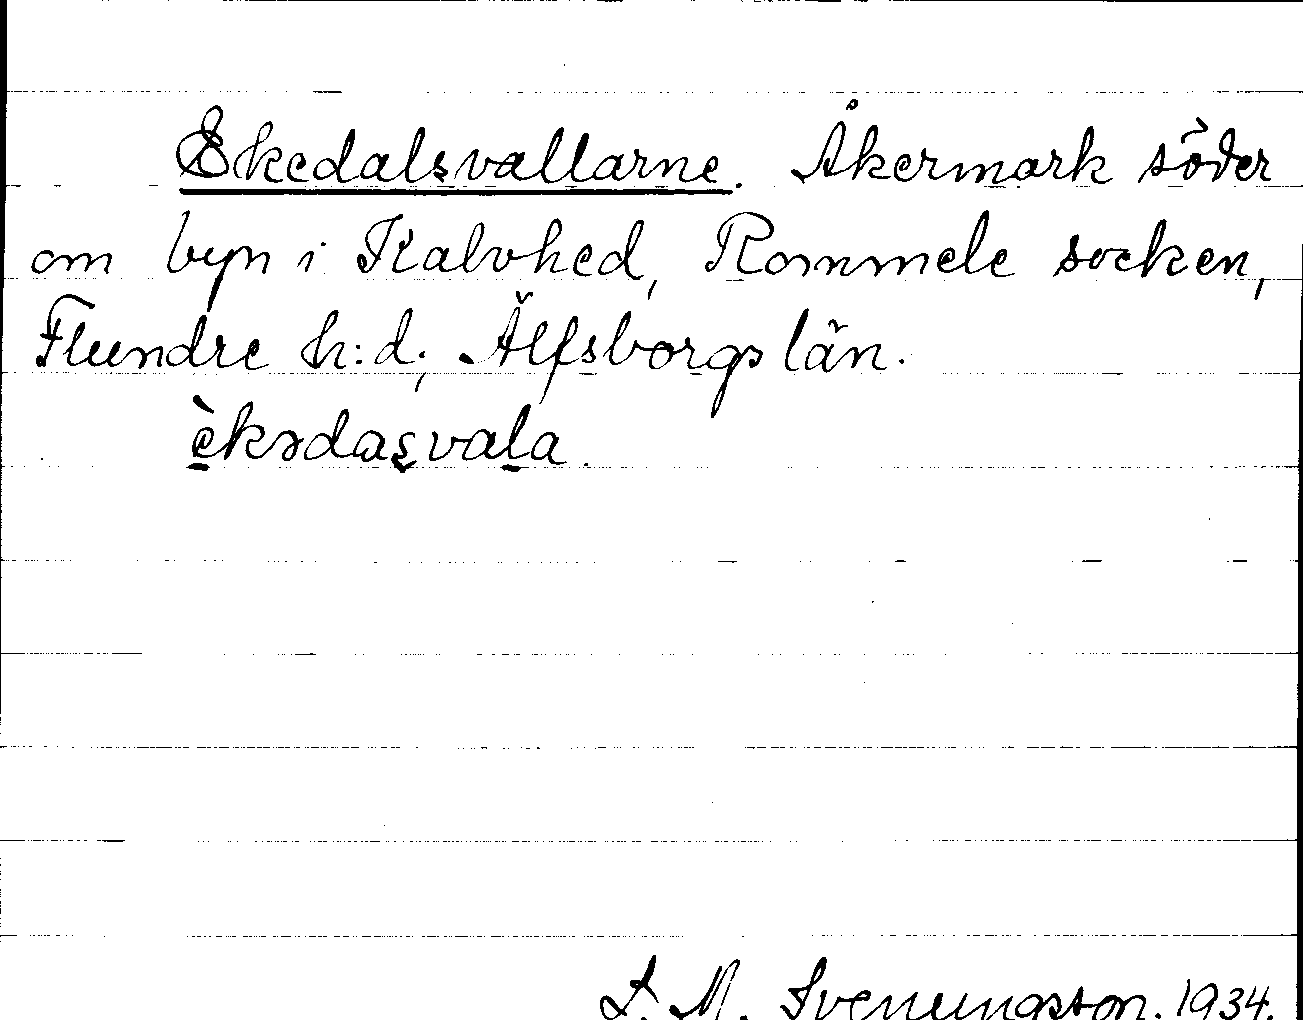 Ekedalsvallarne. Åkermark söder
om byn i Kalvhed, Rommele socken,
Flundre h:d, Älfsborgs län.
è̱kədaʂvaḻa.
S. M. Svenungsson. 1934.